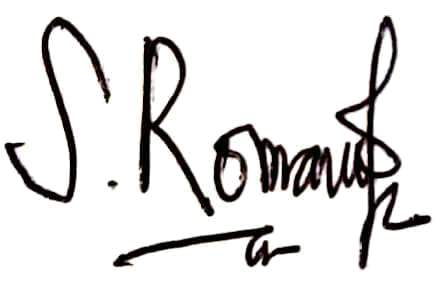 S. Romanof